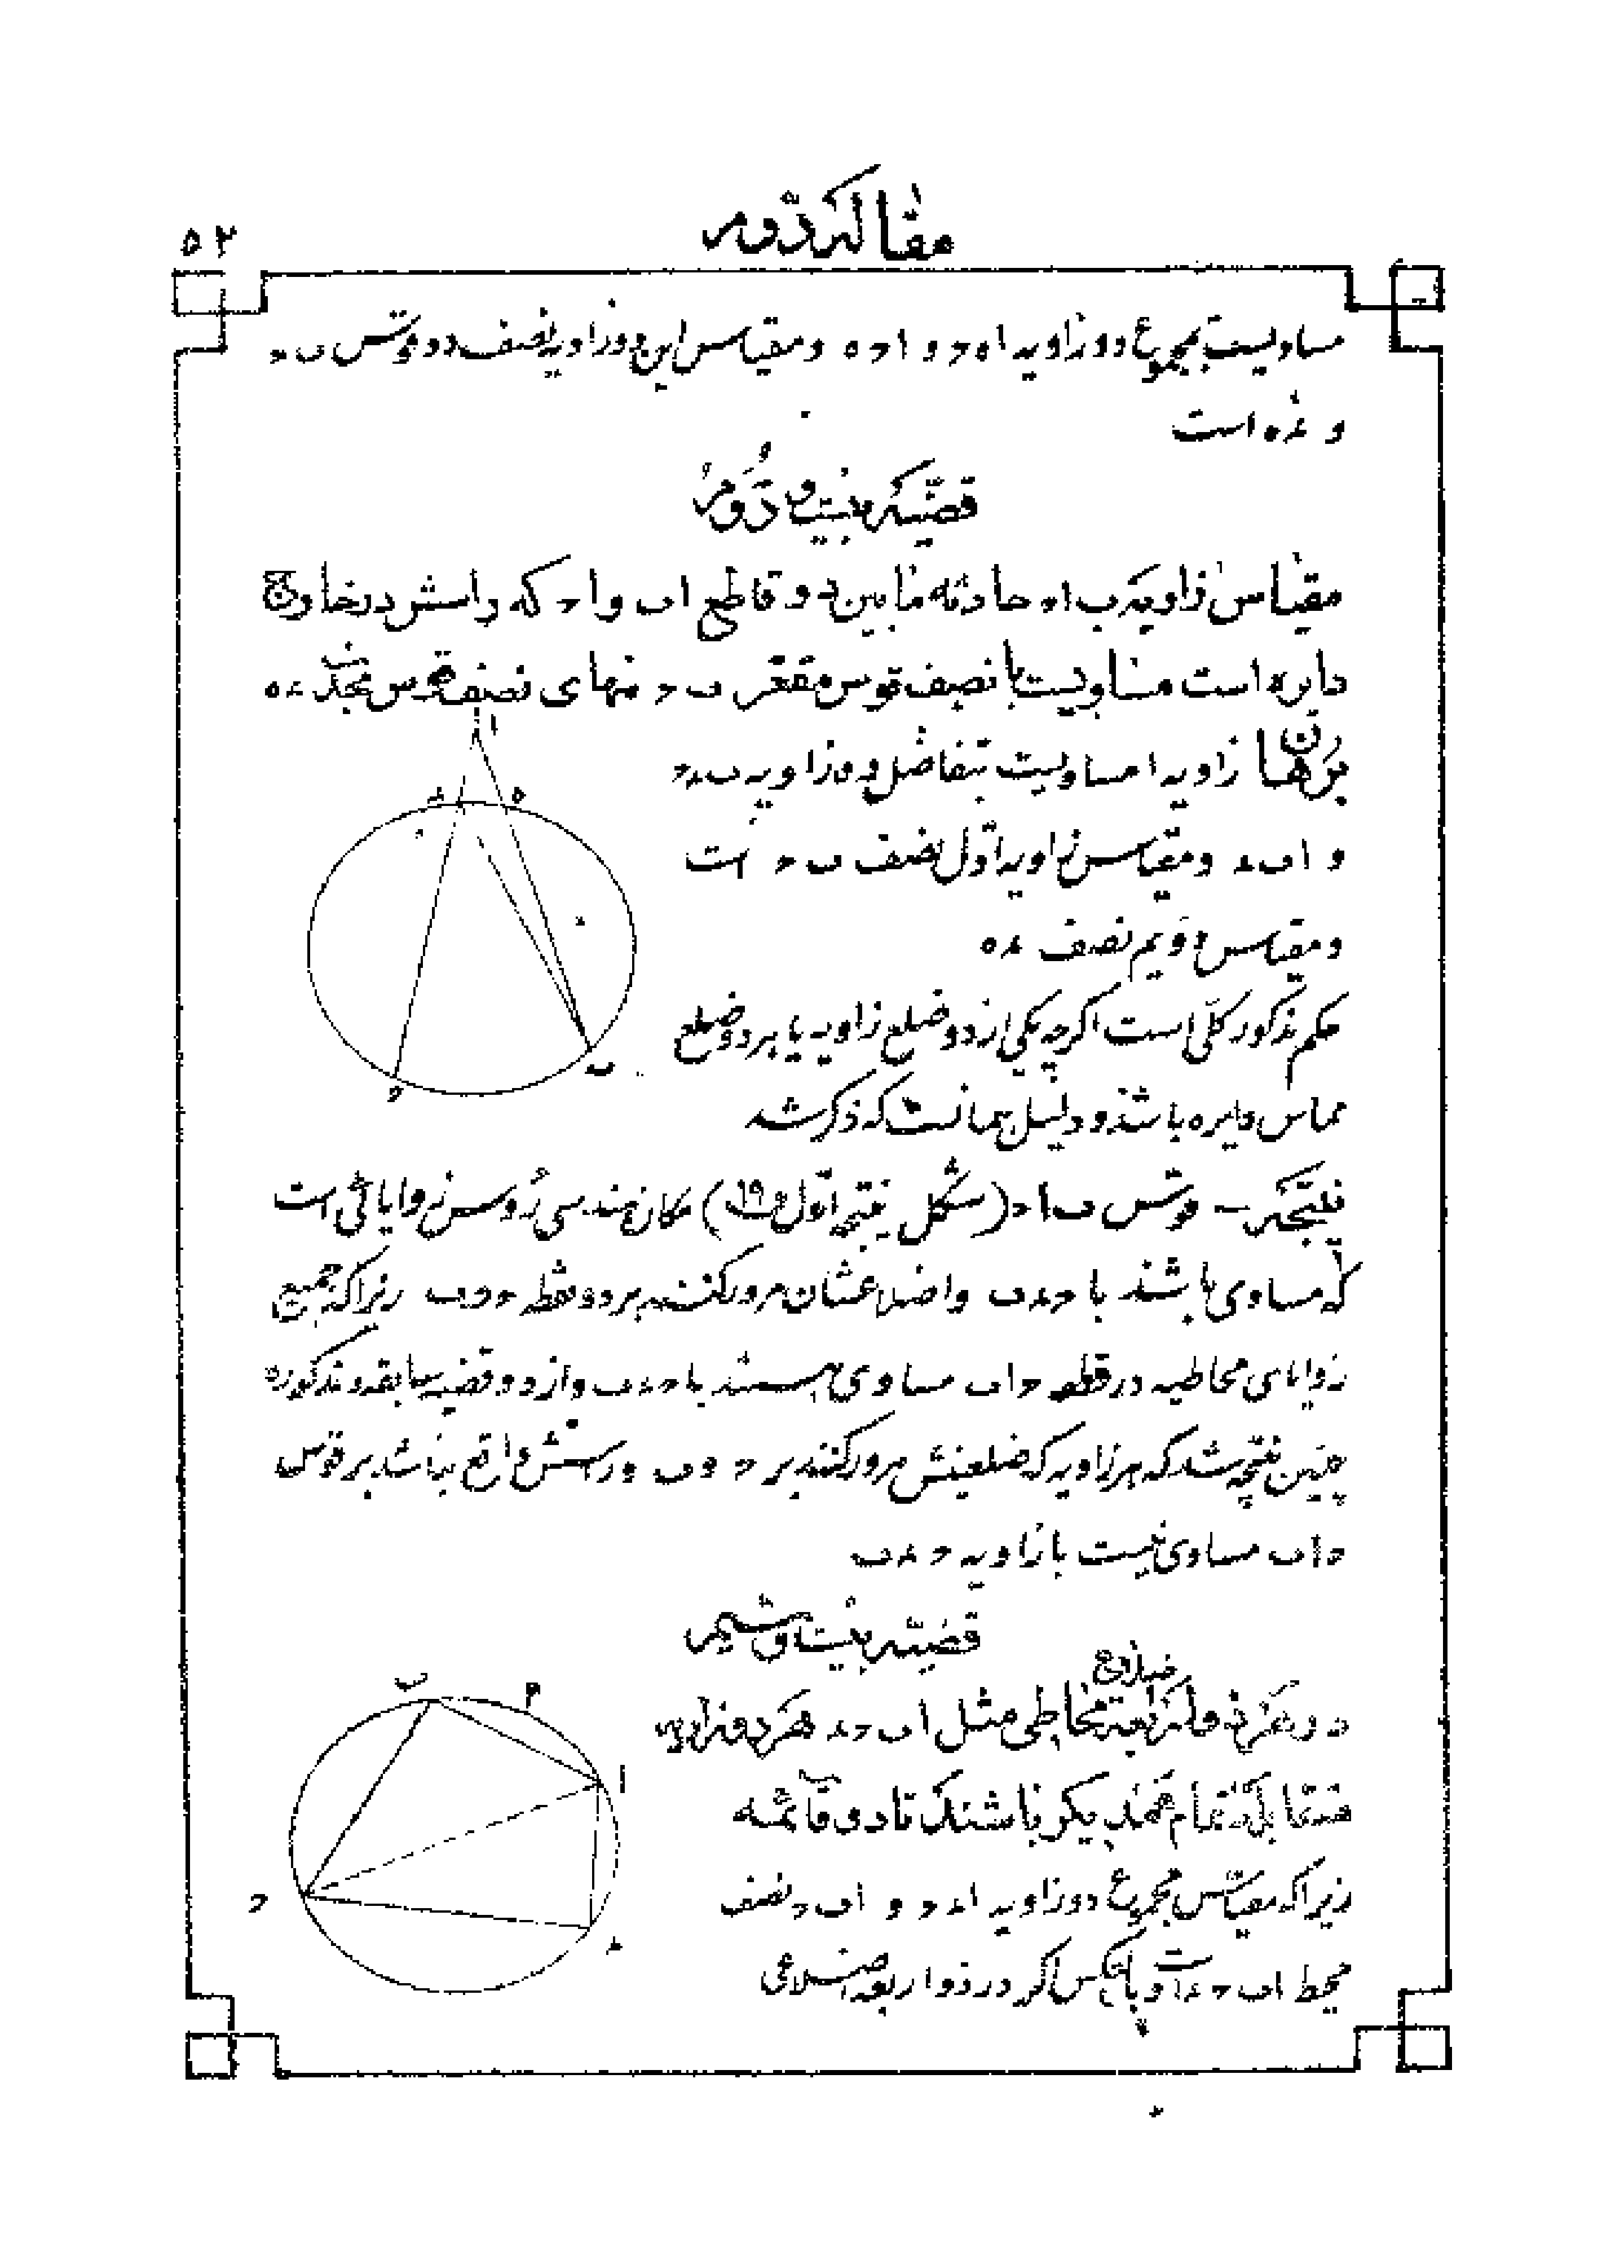 مقاله دوم
۵۲
مساویست بمجموع دو زاویه اه‍ح و اح‍ه ومقیاس این دو زاویه نصف دو قوس ب‍ح
و ع‍ه است
قضیه بیست و دوم
مقیاس زاویه ب‍اح حادثه مابین دو قاطع اب و اح که راسش در خارج
دایره است مساویست با نصف قوس مقعر ب‍ح منهای نصف قوس محدب ء‍ه
برهان زاویه ا مساویست بتفاضل دو زاویه ب‍ء‍ح
و اب‍ء ومقیاس زاویه اول نصف ب‍ح است
ومقیاس دویم نصف ء‍ه
حکم مذکور کلی است اگرچه یکی از دو ضلع زاویه یا هر دو ضلع
مماس دایره باشد و دلیل همانست که ذکر شد
نتیجه – قوس ب‍اح (شکل نتیجه اول ق ۱۹) مکان هندسی رؤس زوایائی است
که مساوی باشند با ح‍ء‍ب واضلاعشان مرور کنند بر دو نقطه ح و ب زیرا که جمیع
زوایای محاطیه در قطعه ح‍اب مساوی هستند با ح‍ء‍ب و از دو قضیه سابقه مذکوره
چنین نتیجه شد که هر زاویه که ضلعینش مرور کنند بر ح و ب ورأسش واقع نباشد بر قوس
ح‍اب مساوی نیست با زاویه ح‍ء‍ب
قضیه بیست و سیم
در هر ذو اربعة اضلاع محاطی مثل اب‍ح‍ء هر دو زاویه
متقابله تمام همدیگر باشند تا دو قائمه
زیرا که مقیاس مجموع دو زاویه اء‍ح و اب‍ح نصف
محیط اب‍ح‍ء است و بالعکس اگر در ذو اربعه اضلاعی
ا
ء
ه
ب
ح
ب
م
ا
ح
ء